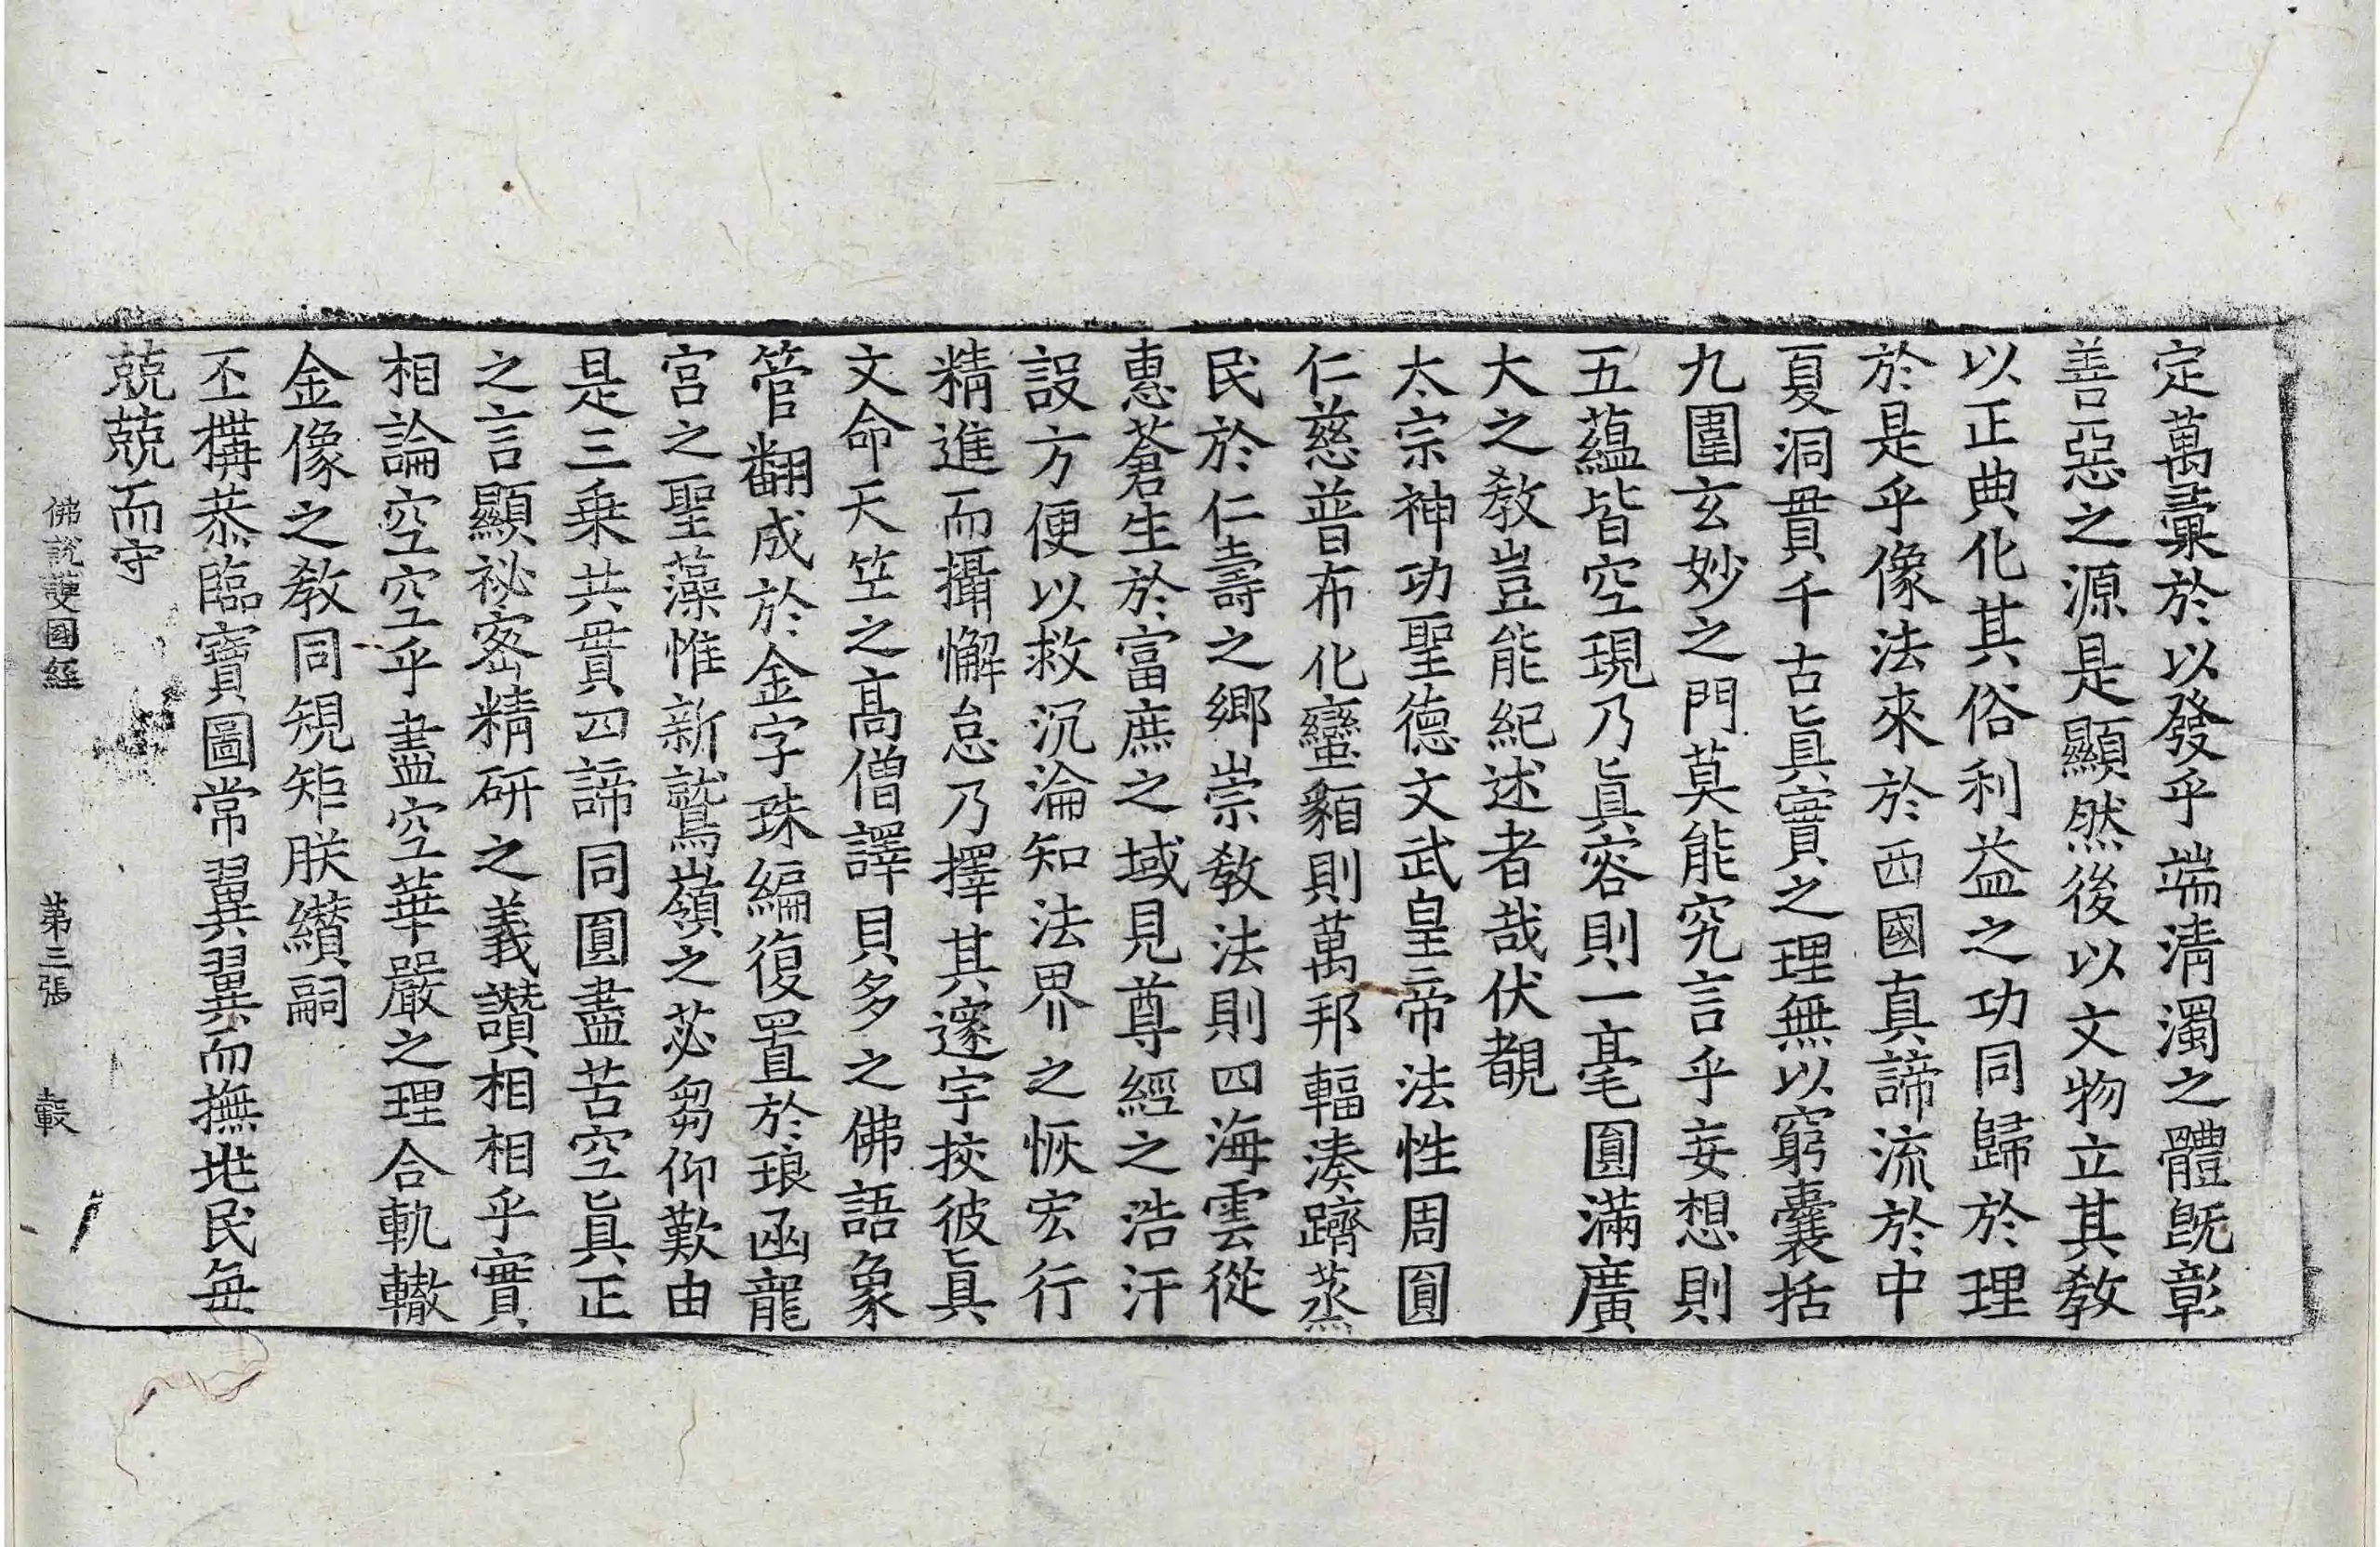 定萬彙於以發乎端淸濁之體旣彰
善惡之源是顯然後以文物立其敎
以正典化其俗利益之功同歸於理
於是乎像法來於西國真諦流於中
夏洞貫千古眞實之理無以窮囊括
九圍玄妙之門莫能究言乎妄想則
五蘊皆空現乃眞容則一毫圓滿廣
大之敎豈能紀述者哉伏覩
太宗神功聖德文武皇帝法性周圓
仁慈普布化蠻貊則萬邦輻湊躋蒸
民於仁壽之鄉崇敎法則四海雲從
惠蒼生於富庶之域見尊經之浩汗
設方便以救沉淪知法界之恢宏行
精進而攝懈怠乃擇其邃宇挍彼眞
文命天竺之高僧譯貝多之佛語象
管翻成於金字珠編復置於琅函龍
宮之聖藻惟新鷲嶺之苾芻仰歎由
是三乗共貫四諦同圓盡苦空眞正
之言顯祕密精研之義讚相相乎實
相論空空乎盡空華嚴之理合軌轍
金像之敎同䂓矩朕纘嗣
丕構恭臨寶圖常翼翼而撫兆民每
兢兢而守
佛說護國經 第三張 轂